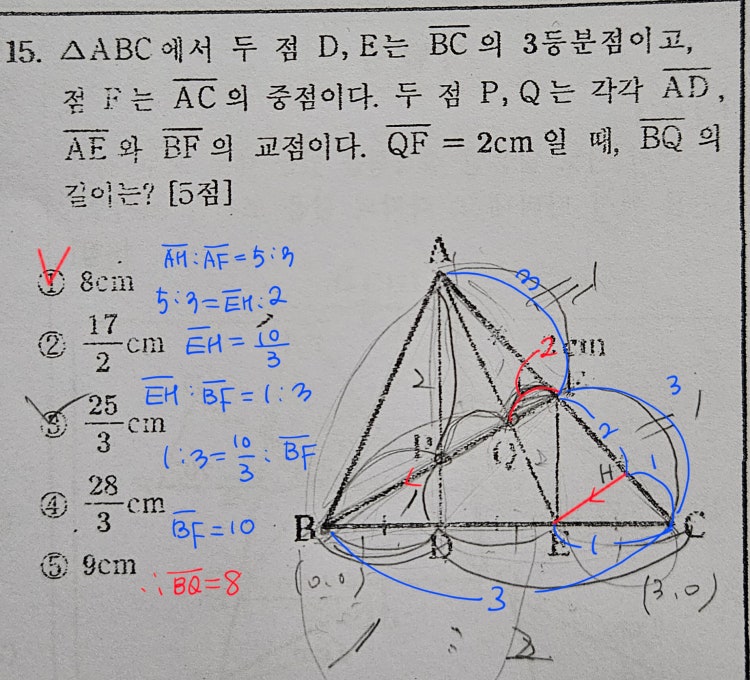 15. △ABC에서 두 점 D, E는 BC의 3등분점이고,
점 F는 AC의 중점이다. 두 점 P, Q는 각각 AD,
AE와 BF의 교점이다. QF = 2cm일 때, BQ의
길이는? [5점]
① 8cm
② 17/2 cm
③ 25/3 cm
④ 28/3 cm
⑤ 9cm
AH : AF = 5 : 3
5 : 3 = EH : 2
EH = 10/3
EH : BF = 1 : 3
1 : 3 = 10/3 : BF
BF = 10
∴ BQ = 8
A
3
1
2cm
2
F
3
1
2
P
Q
2
H
1
1
B
D
E
C
1
(0,0)
3
(3,0)
1 : 2